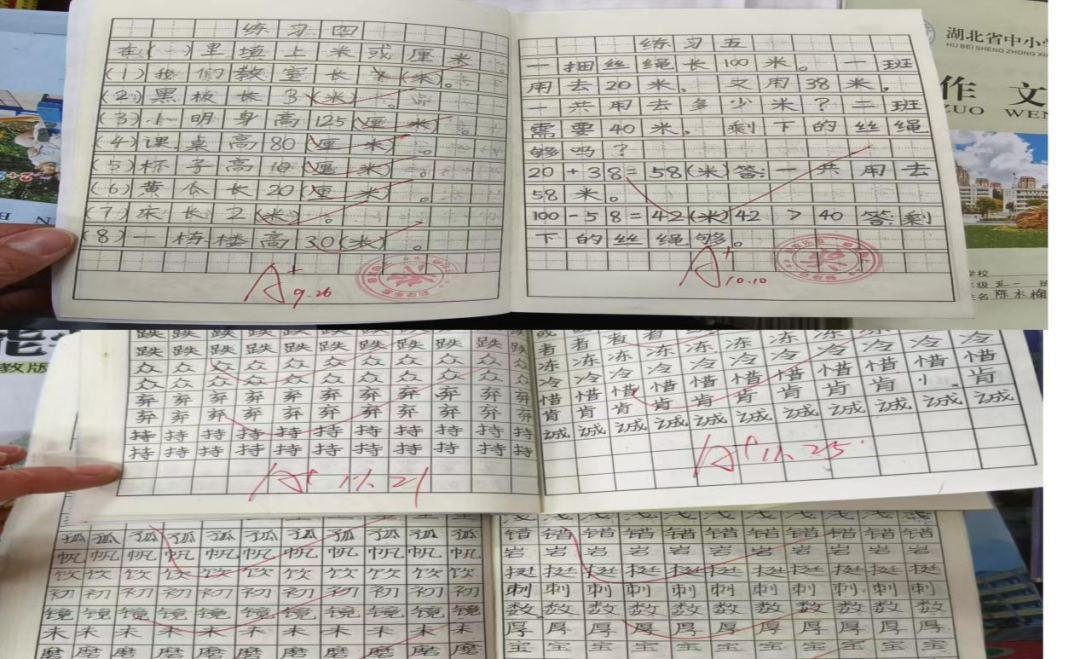 练习四
在( )里填上米或厘米。
(1)我们教室长 (米)。
(2)黑板长3(米)。
(3)小明身高125(厘米)。
(4)课桌高80(厘米)。
(5)杯子高10(厘米)。
(6)黄瓜长20(厘米)。
(7)床长2(米)。
(8)一栋楼高30(米)。
A+ 9.26
练习五
一捆丝绳长100米。一班
用去20米,又用38米,
一共用去多少米?二班
需要40米,剩下的丝绳
够吗?
20+38=58(米)答:一共用去
58米。
100-58=42(米)42>40 答:剩
下的丝绳够。
A+ 10.10
湖北省中小学
HU BEI SHENG ZHONG XIA
作文
ZUO WEN
教版
跌跌跌跌跌跌跌跌跌跌
跌跌跌跌跌跌跌跌跌跌
众众众众众众众众众众
众众众众众众众众众众
弃弃弃弃弃弃弃弃弃弃
弃弃弃弃弃弃弃弃弃弃
持持持持持持持持持持
持持持持持持持持持持
A+ 11.21
者者者者者者者者
冻冻冻冻冻冻冻冻
冷冷冷冷冷冷冷冷
惜惜惜惜惜惜惜惜
肯肯肯肯肯肯肯
诚诚诚诚诚诚诚诚
A+ 11.25
孤孤孤孤孤孤孤孤孤孤孤
帆帆帆帆帆帆帆帆帆帆帆
饮饮饮饮饮饮饮饮饮饮饮
初初初初初初初初初初初
镜镜镜镜镜镜镜镜镜镜镜
未未未未未未未未未未未
磨磨磨磨磨磨磨磨磨磨磨
浅浅浅浅浅浅浅浅浅浅浅
错错错错错错错错错错错
岩岩岩岩岩岩岩岩岩岩岩
挺挺挺挺挺挺挺挺挺挺挺
刺刺刺刺刺刺刺刺刺刺刺
数数数数数数数数数数数
厚厚厚厚厚厚厚厚厚厚厚
宝宝宝宝宝宝宝宝宝宝宝